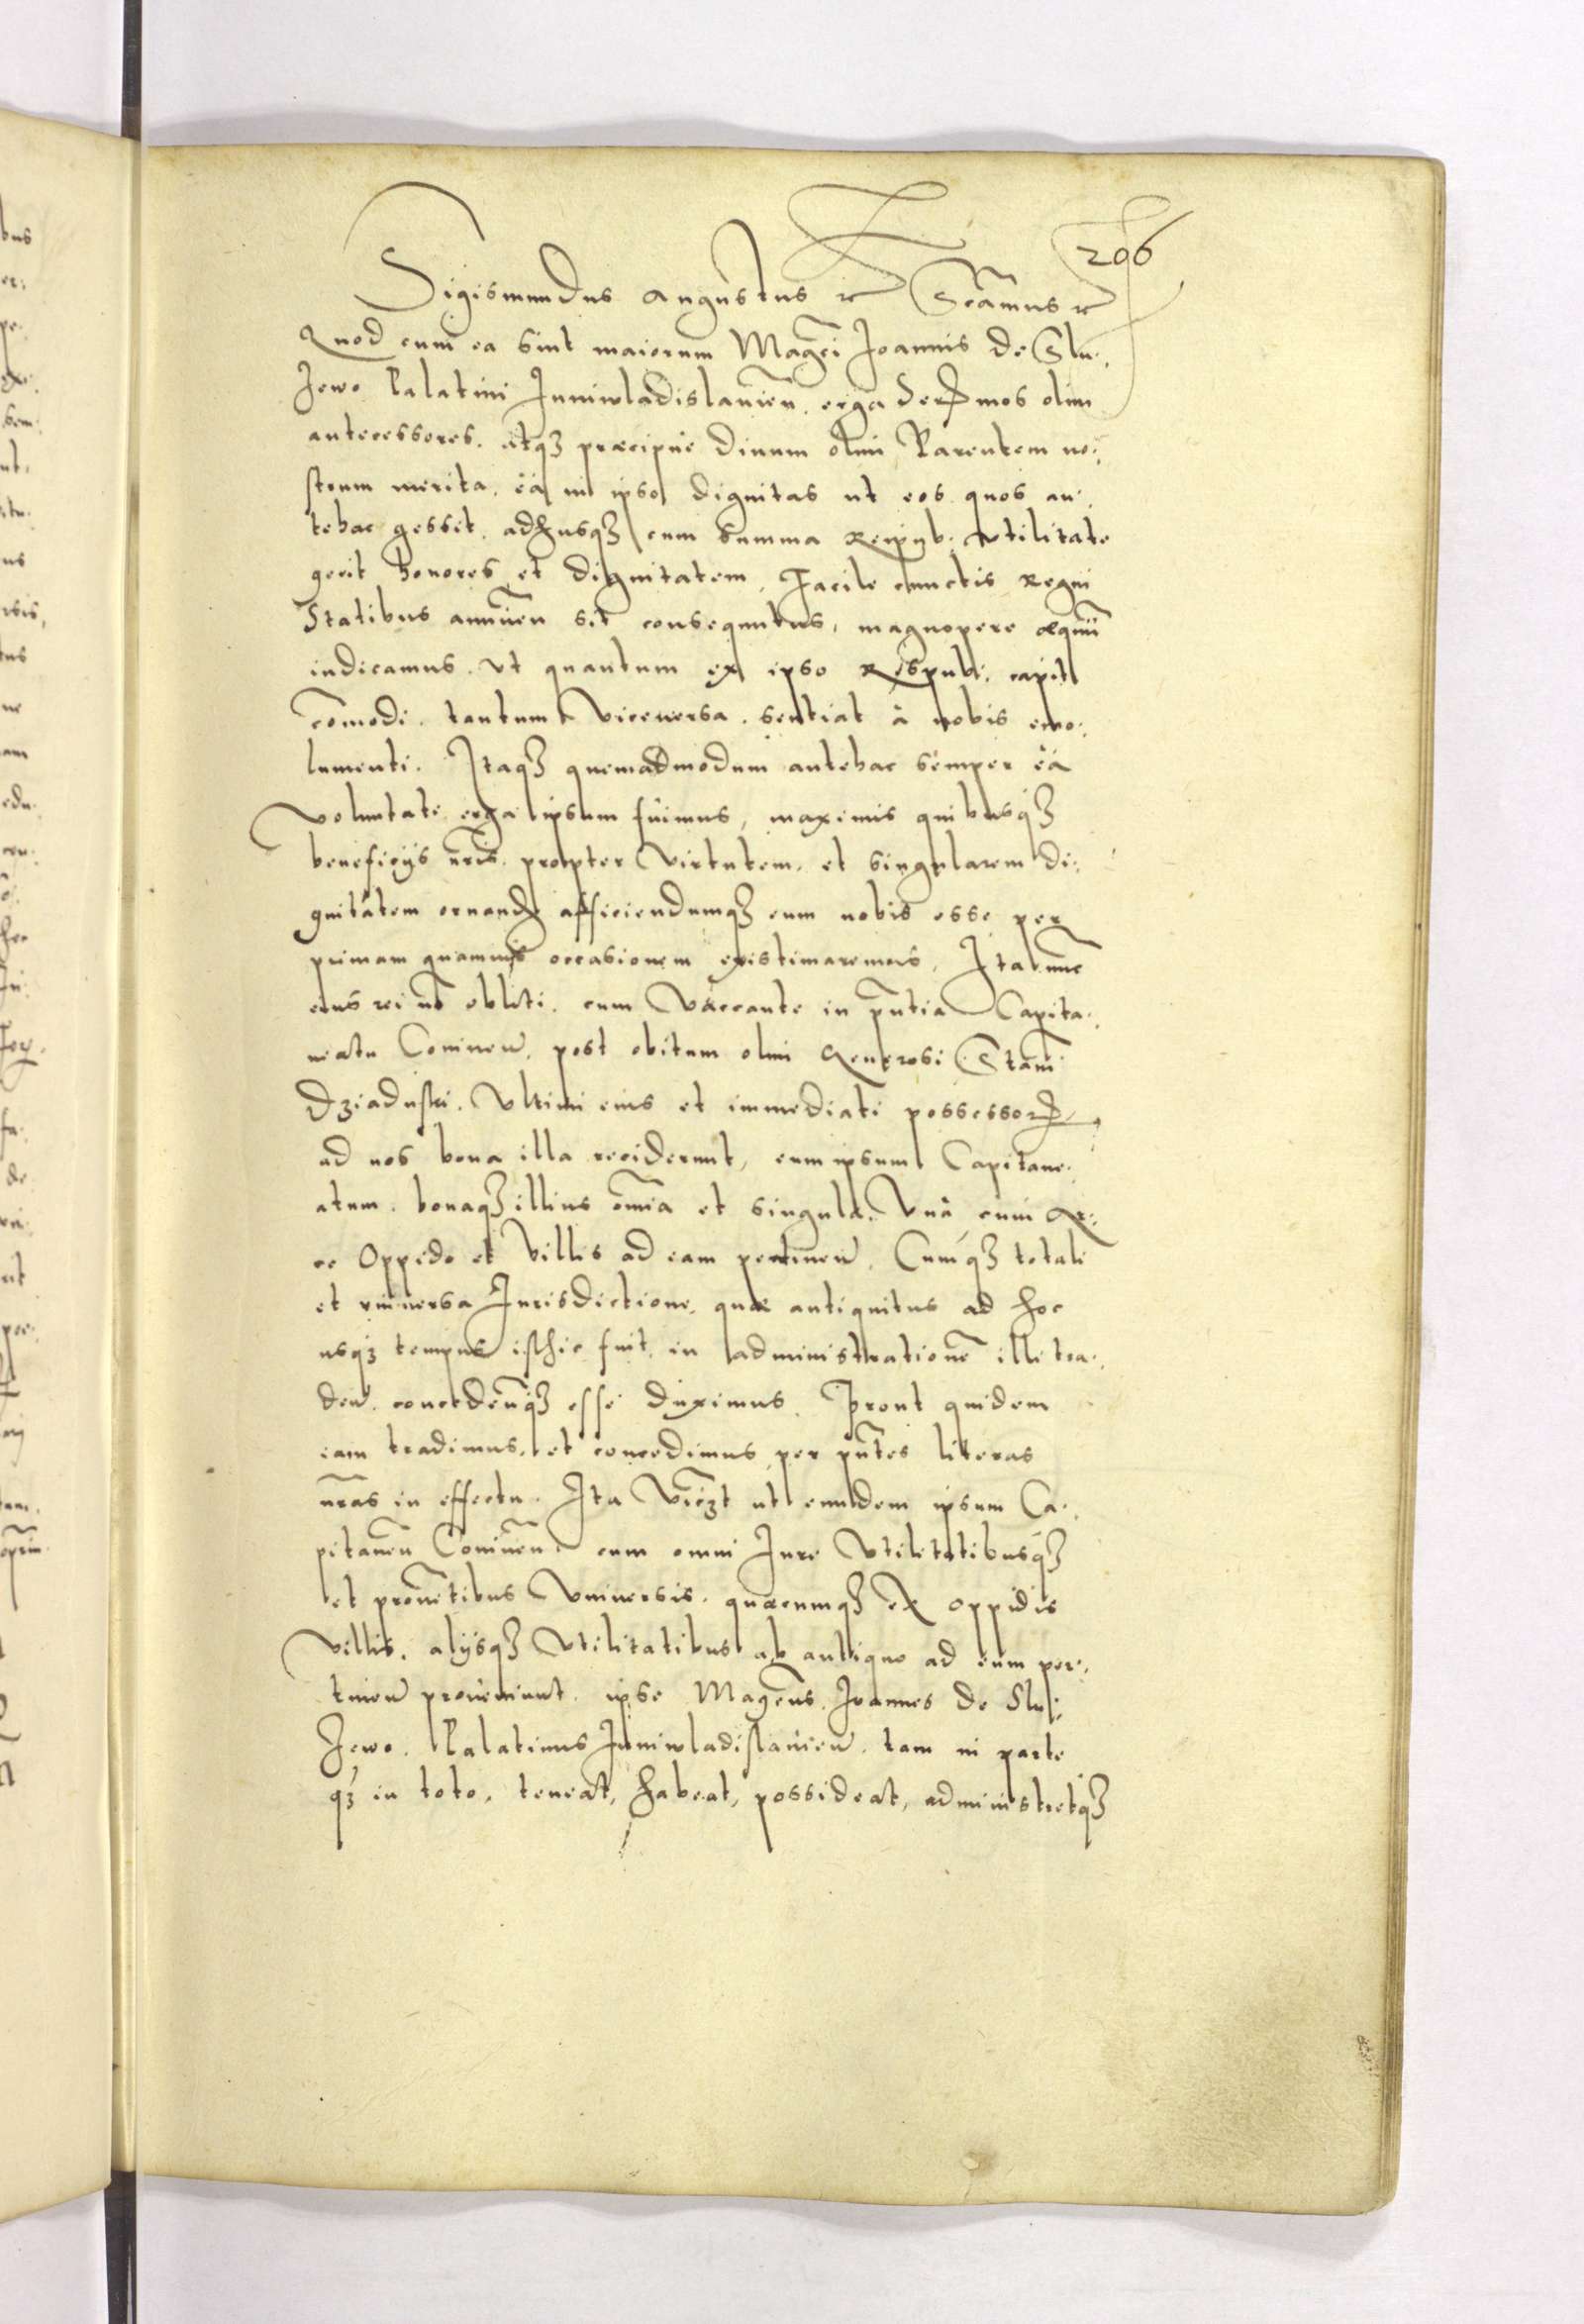 206
Sigismundus Augustus rc Scāmus rc
Quod cum ea sint maiorum Magci Joannis de Slu:
zewo Palatini Juniwladislauien. erga Sermos olim
antecessores. atqз praecipue Diuum olim Parentem no:
strum merita, ea in ipso dignitas ut eos quos an:
tehac gessit. adhusqз cum summa Reipub: vtilitate
gerit honores et dignitatem, Facile cunctis Regni
Statibus sit consequutus, magnopere aequū
iudicamus. Vt quantum ex ipso Respub: capit
cōmodi. tantum viceuersa. sentiat à nobis emo:
lumenti. Itaqз quemadmodum antehac semper ea
voluntate erga ipsum fuimus, maximis quibusqз
beneficijs nr̄is. propter virtutem. et singularem di:
gnitatem ornand afficiendumqз eum nobis esse per
primam quamuis occasionem existimaremus, Ita nunc
eius rei nō obliti. cum vaccante in pn̄tia Capita:
neatu Coninen. post obitum olim Generosi Stani
Dziaduski. Vltimi eius et immediati possessor
ad nos bona illa reciderunt, eum ipsum Capitane:
atum. bonaqз illius omīa et singula. Vnà cum Ar:
ce Oppido et Villis ad eam pertinen. Cumqз totali
et vniuersa Jurisdictione. quae antiquitus ad hoc
usqз tempus isthic fuit. in administrationē illi tra:
den. concedenqз esse duximus. Prout quidem
eam tradimus. et concedimus per pn̄tes literas
nr̄as in effectu. Ita Viczt ut eundem ipsum Ca:
pitaneū Coninen. cum omni Jure Vtilitatibusqз
et prouētibus Vniuersis. quaecumqз ex oppidis
Villis. alijsqз Vtilitatibus ab antiquo ad eum per:
tinen proueniunt. ipse Magcus Joannes de Slu:
zewo. Palatinus Juniwladislauien. tam in parte
qз in toto. teneat, habeat, possideat, administretqз